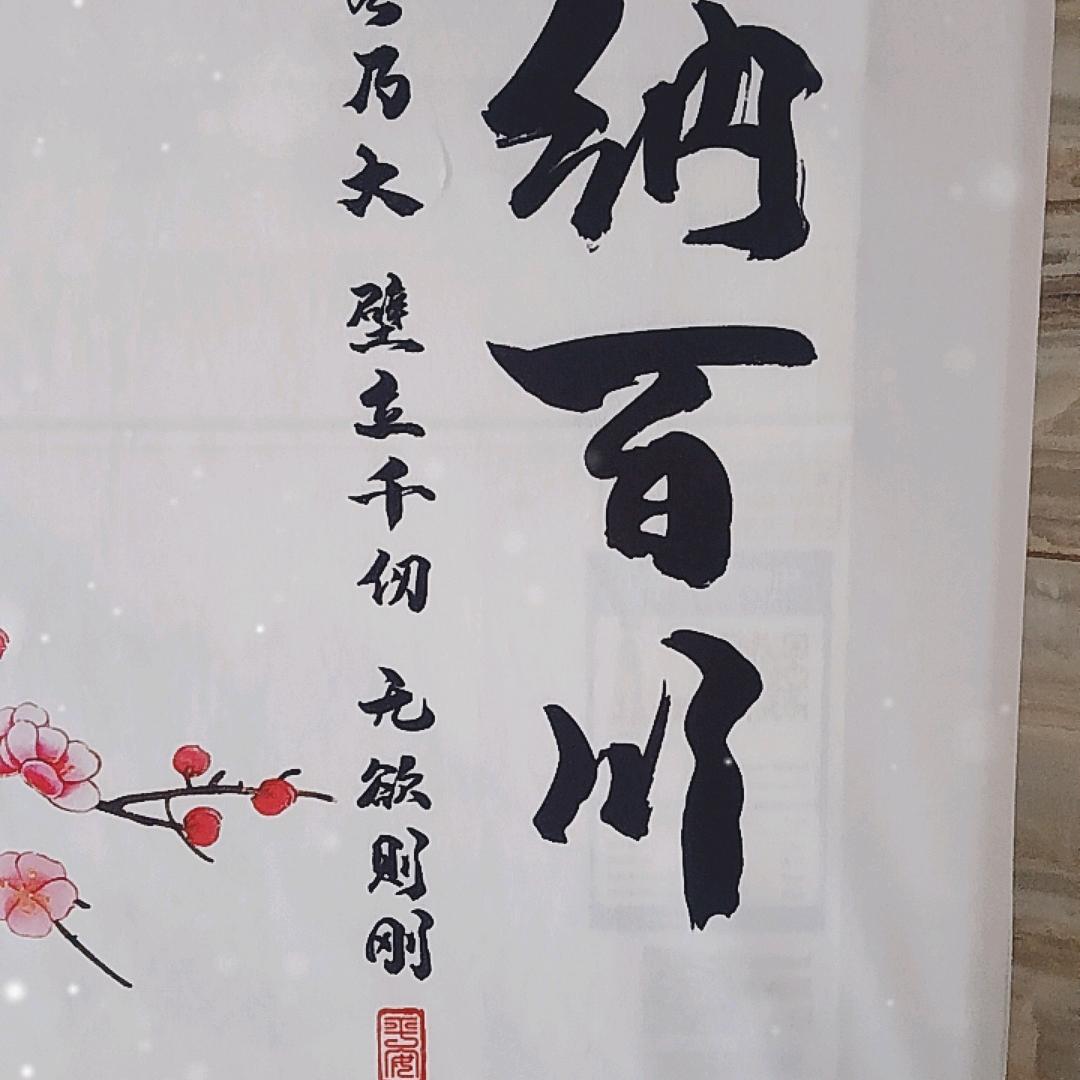 纳百川
乃大 壁立千仞 无欲则刚
平安